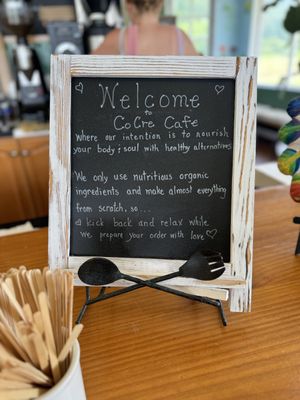 Welcome
to
CoCre Cafe
Where our intention is to nourish
your body & soul with healthy alternatives
We only use nutritious organic
ingredients and make almost everything
from scratch, so...
kick back and relax while
We prepare your order with love